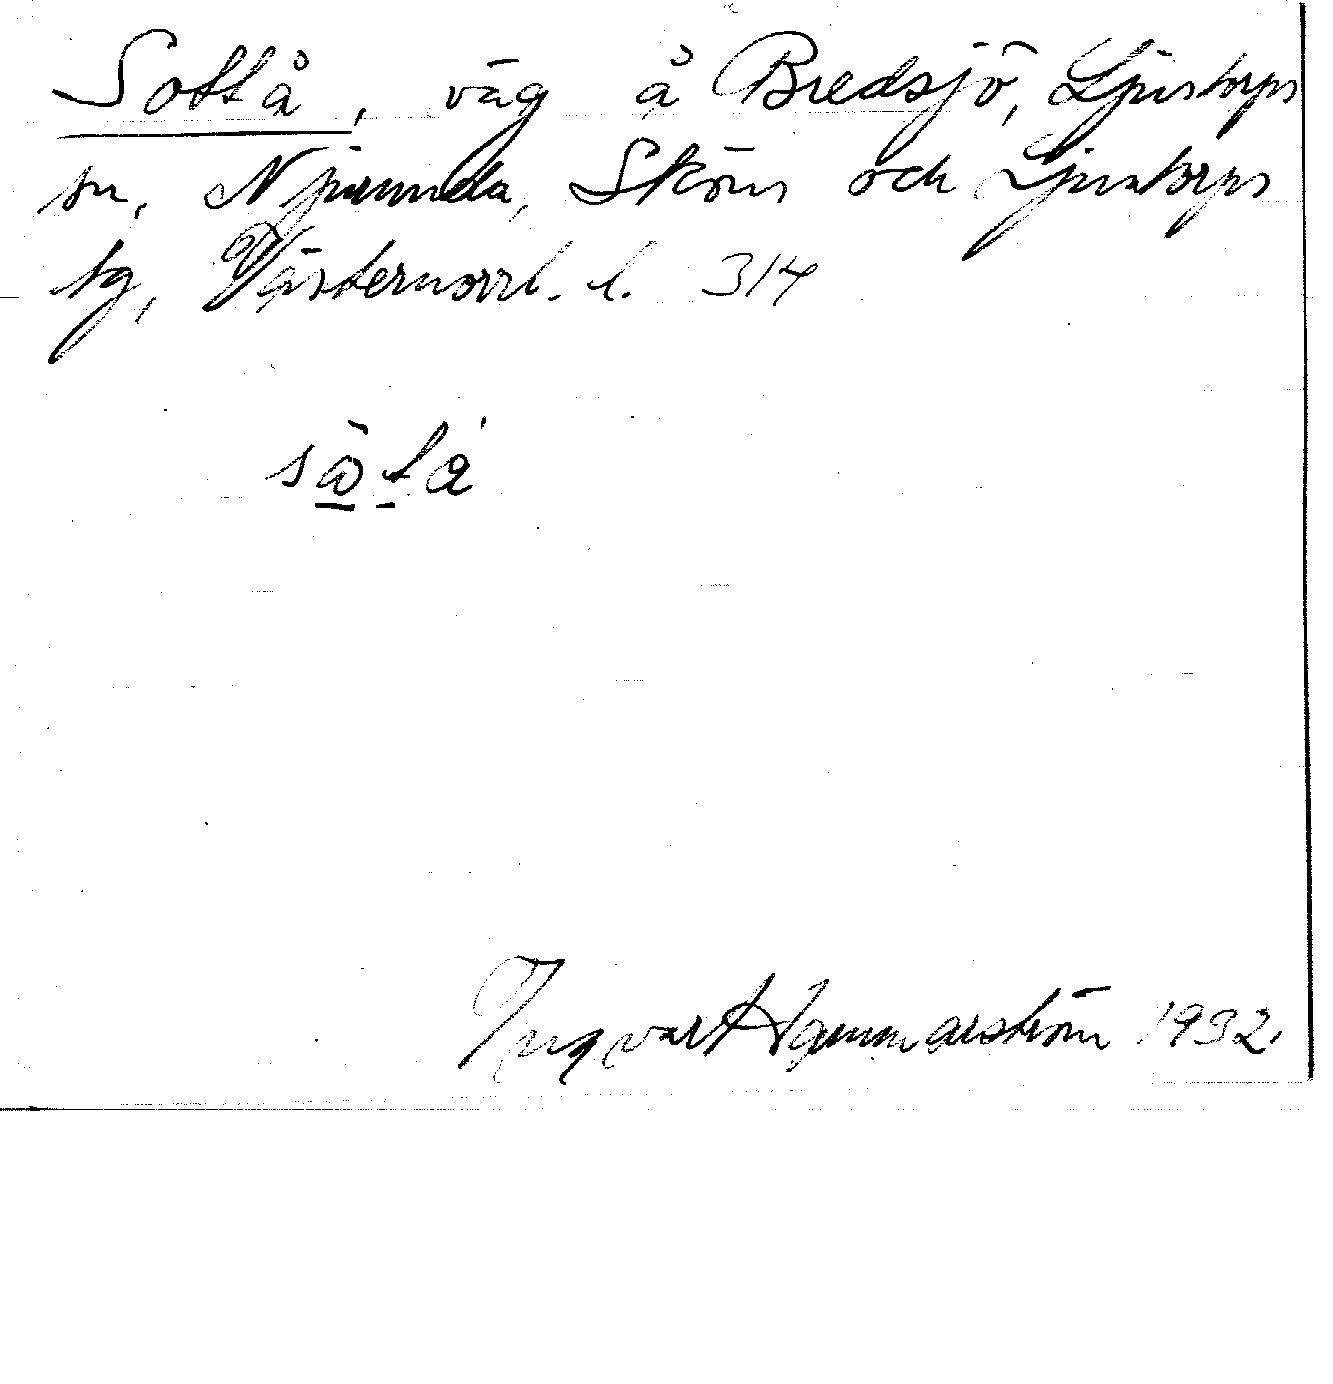 Sottå, väg å Bredsjö, Ljustorps
sn, Njurunda, Sköns och Ljustorps
tg, Västernorrl. l. 314
Ingvar Hammarström 1932.